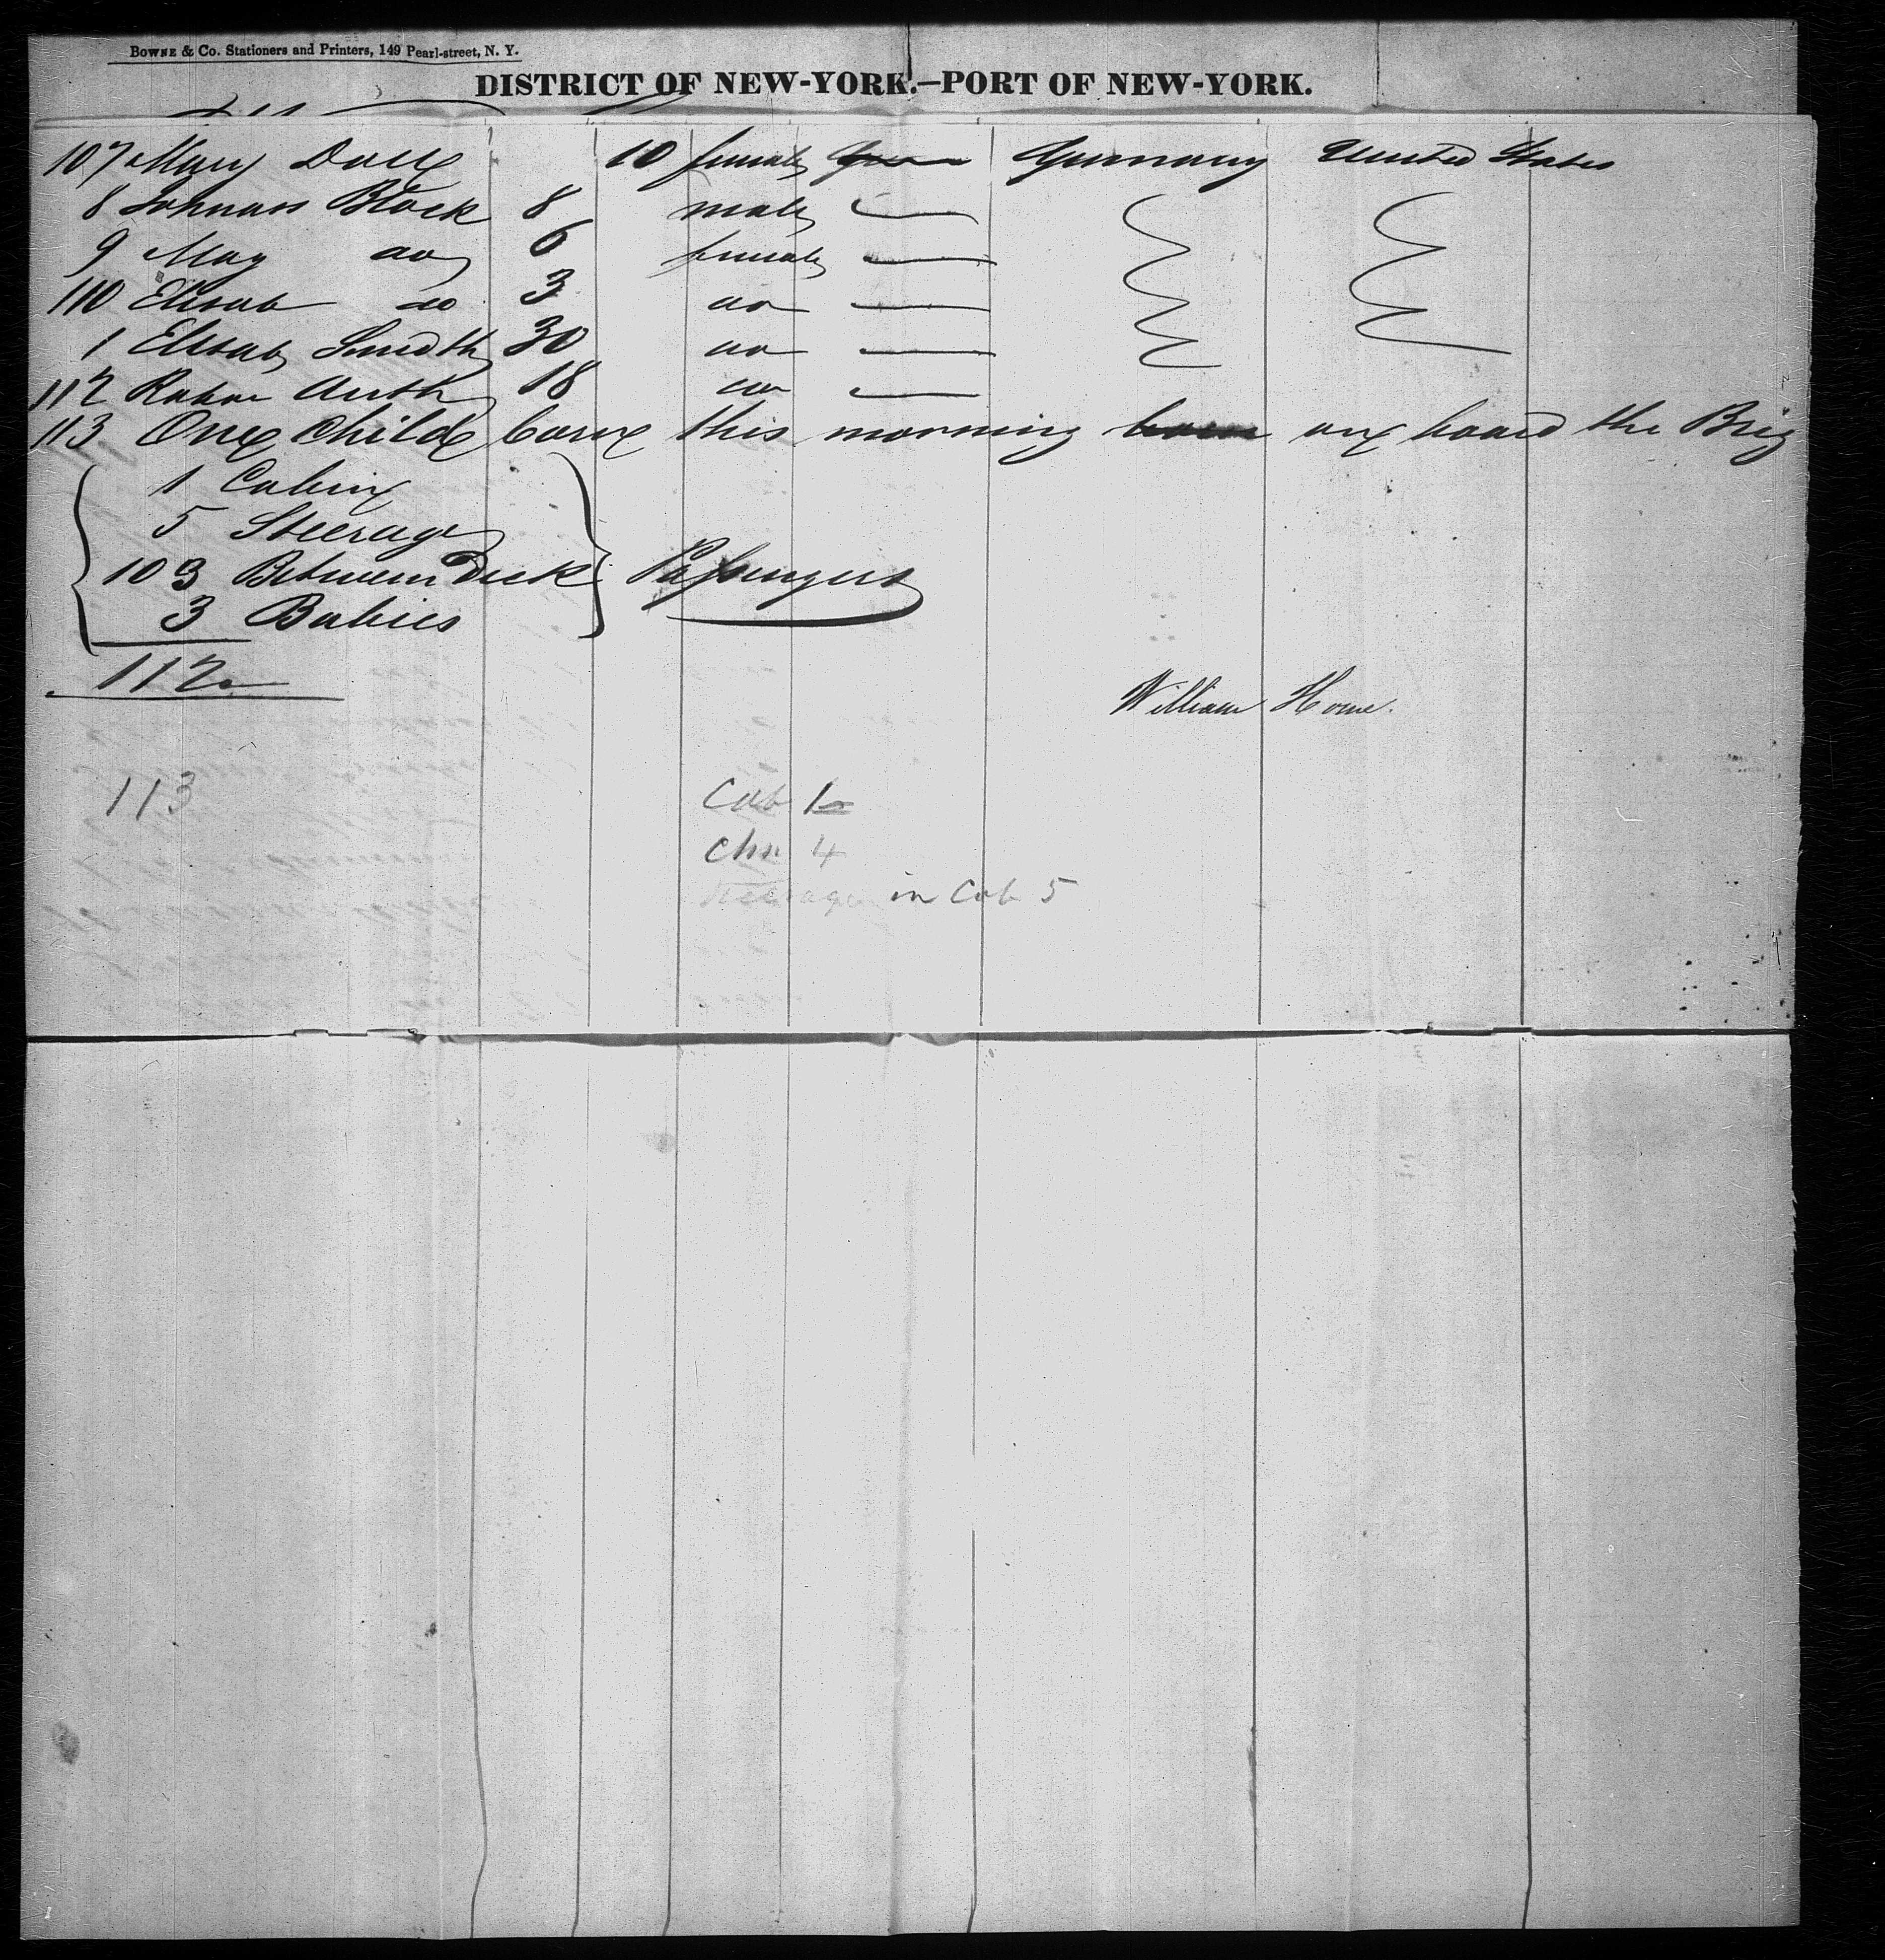 BOWNE & Co. Stationers and Printers, 149 Pearl-street, N. Y.
DISTRICT OF NEW-YORK.—PORT OF NEW-YORK.
107 Mary Doll 10 female Germany United States
8 Johnass Block 8 male
9 May do 6 female
110 Elisab do 3 do
1 Elisab Smedth 30 do
112 Auth 18 do
113 One Child born this morning born on board the Brig
1 Cabin
5 Steerage
103 Between Deck Passengers
3 Babies
112
William Howe.
113 Cab 1
Chn 4
Steerage in Cab 5